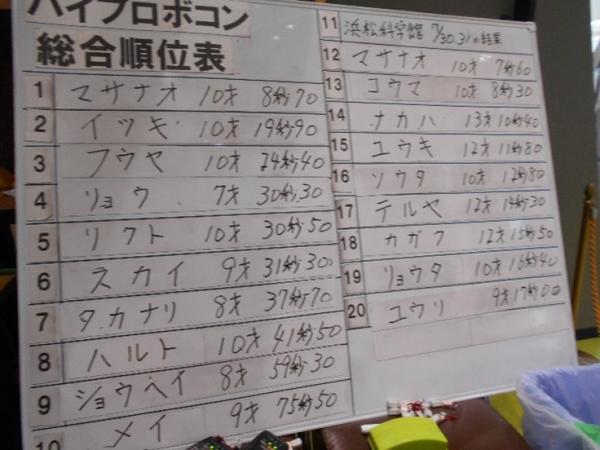 バイプロボコン
総合順位表
1 マサナオ 10才 8秒70
2 イツキ 10才 19秒90
3 フウヤ 10才 24秒40
4 リョウ 7才 30秒30
5 リクト 10才 30秒50
6 スカイ 9才 31秒30
7 タカナリ 8才 37秒70
8 ハルト 10才 41秒50
9 ショウヘイ 8才 59秒30
10 メイ 9才 75秒50
11 浜松科学館 7/30.31の結果
12 マサナオ 10才 7秒60
13 コウマ 10才 8秒30
14 ナカハ 13才 10秒40
15 ユウキ 12才 11秒80
16 ソウタ 10才 12秒80
17 テルヤ 12才 14秒30
18 カガフ 12才 15秒50
19 リョウタ 10才 16秒40
20 ユウリ 9才 17秒00